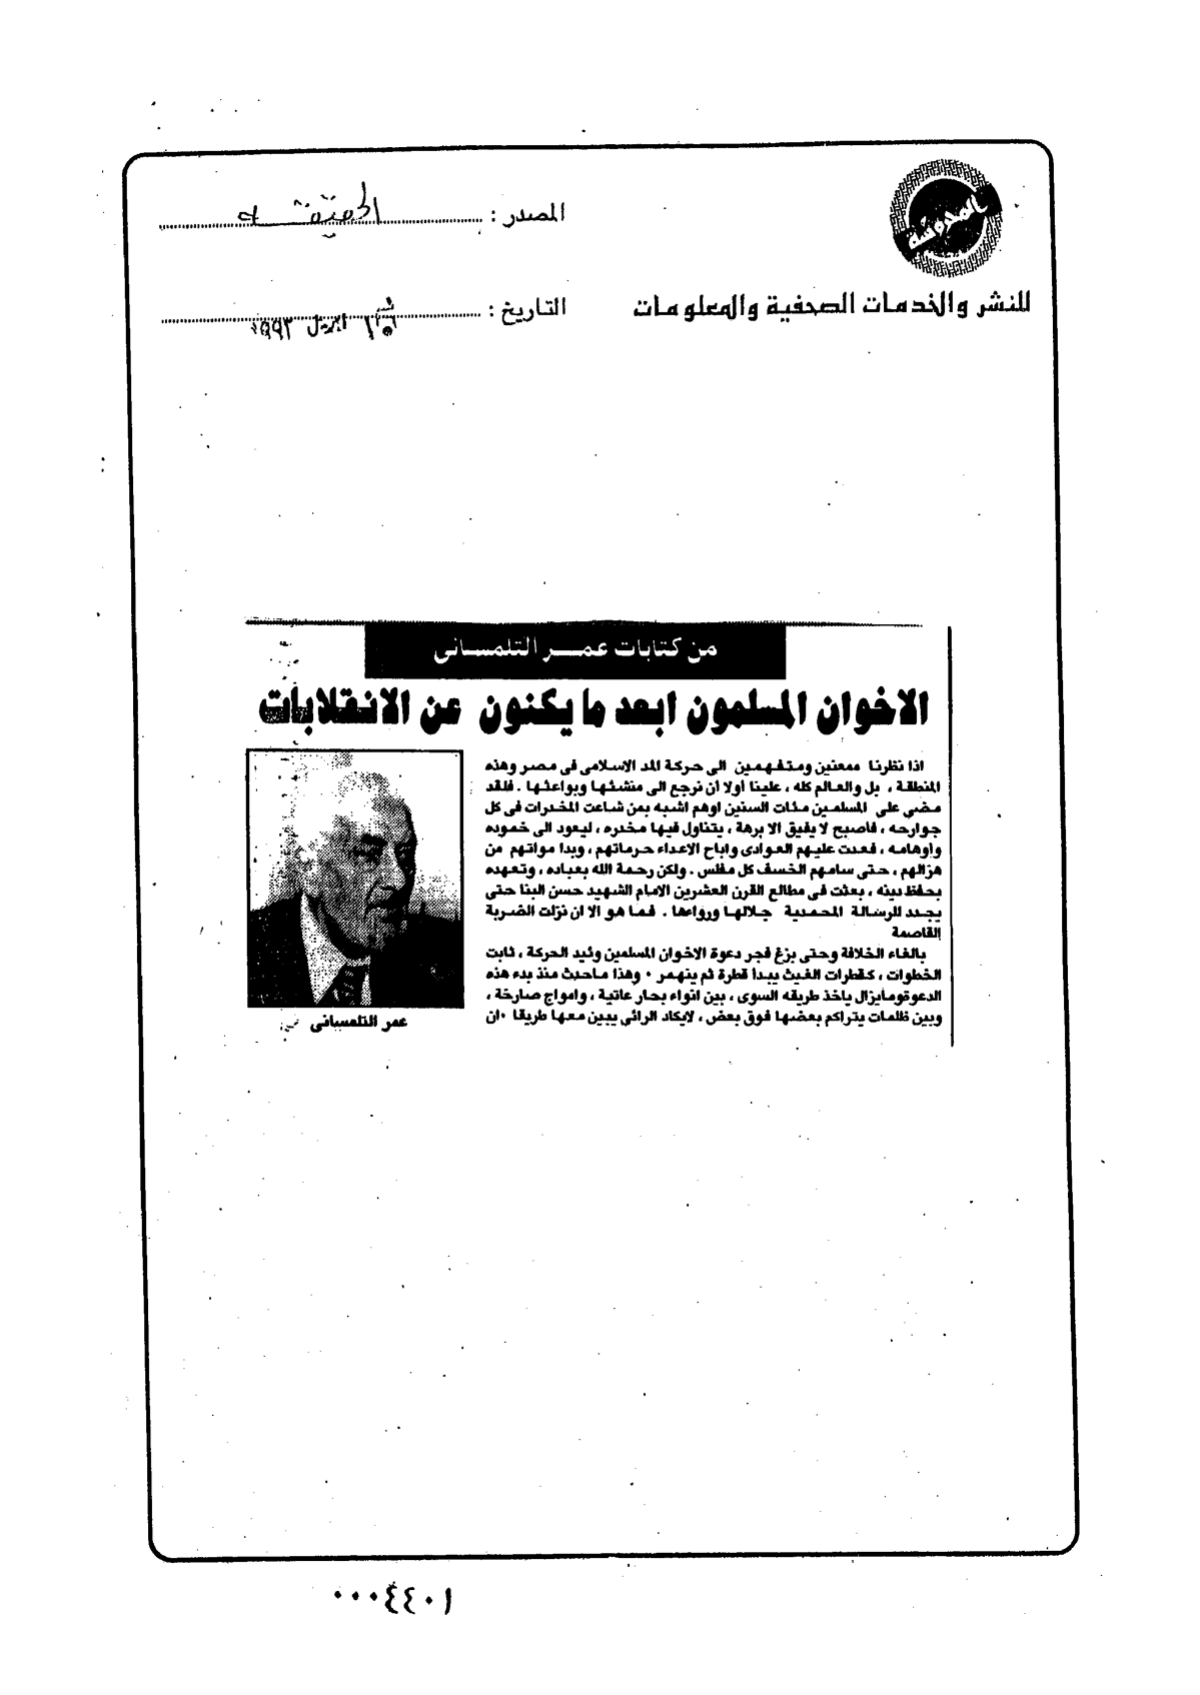 المحروسة
المصدر : الحقيقة
للنشر والخدمات الصحفية والمعلومات
التاريخ : ابريل ١٩٩٣
من كتابات عمــر التلمسانى
الاخوان المسلمون ابعد ما يكنون عن الانقلابات
اذا نظرنا ممعنين ومتفهمين الى حركة المد الاسلامى فى مصر وهذه
المنطقة ، بل والعالم كله ، علينا أولا أن نرجع الى منشئها وبواعثها . فلقد
مضى على المسلمين مئات السنين اوهم اشبه بمن شاعت المخدرات فى كل
جوارحه ، فاصبح لا يفيق الا برهة ، يتناول فيها مخدره ، ليعود الى خموده
واوهامه ، فعدت عليهم العوادى واباح الاعداء حرماتهم ، وبدا مواتهم من
هزالهم ، حتى سامهم الخسف كل مفلس . ولكن رحمة الله بعباده ، وتعهده
بحفظ دينه ، بعثت فى مطالع القرن العشرين الامام الشهيد حسن البنا حتى
يجدد للرسالة المحمدية جلالها ورواءها . فما هو الا ان نزلت الضربة
القاصمة
بالغاء الخلافة وحتى بزغ فجر دعوة الاخوان المسلمين وئيد الحركة ، ثابت
الخطوات ، كقطرات الغيث يبدأ قطرة ثم ينهمر ٠ وهذا ماحدث منذ بدء هذه
الدعوةومايزال ياخذ طريقه السوى ، بين انواء بحار عاتية ، وامواج صارخة ،
وبين ظلمات يتراكم بعضها فوق بعض ، لايكاد الرائى يبين معها طريقا ٠ان
عمر التلمسانى
٠٠٠٤٤٠١